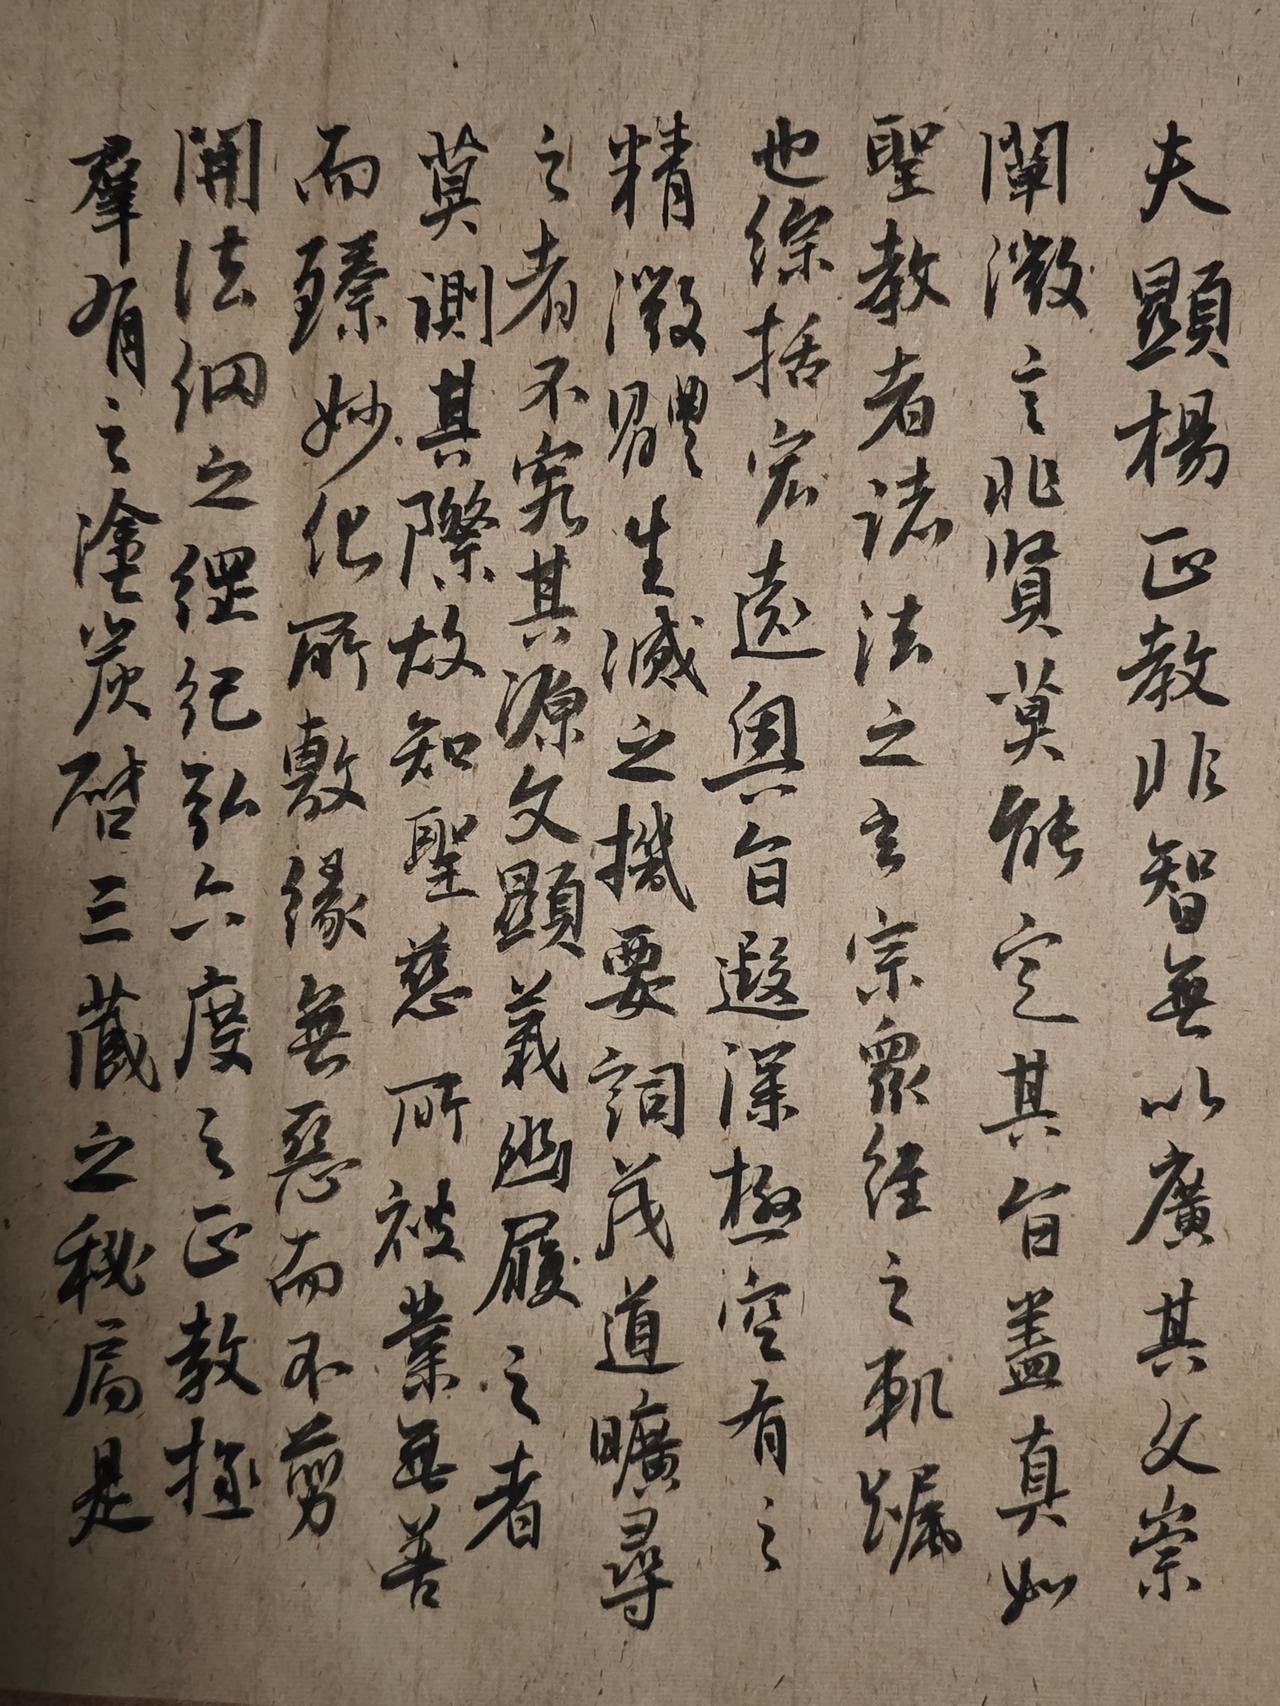 夫顯楊正教非智無以廣其文崇
闡微言非賢莫能定其旨盖真如
聖教者諸法之玄宗眾經之軌躅
也綜括宏遠奧旨遐深極空有之
精微體生滅之機要詞茂道曠尋
之者不究其源文顯義幽履之者
莫測其際故知聖慈所被業無善
而臻妙化所敷緣無惡而不剪
開法網之綱紀弘六度之正教拯
羣有之塗炭啓三藏之秘扃是